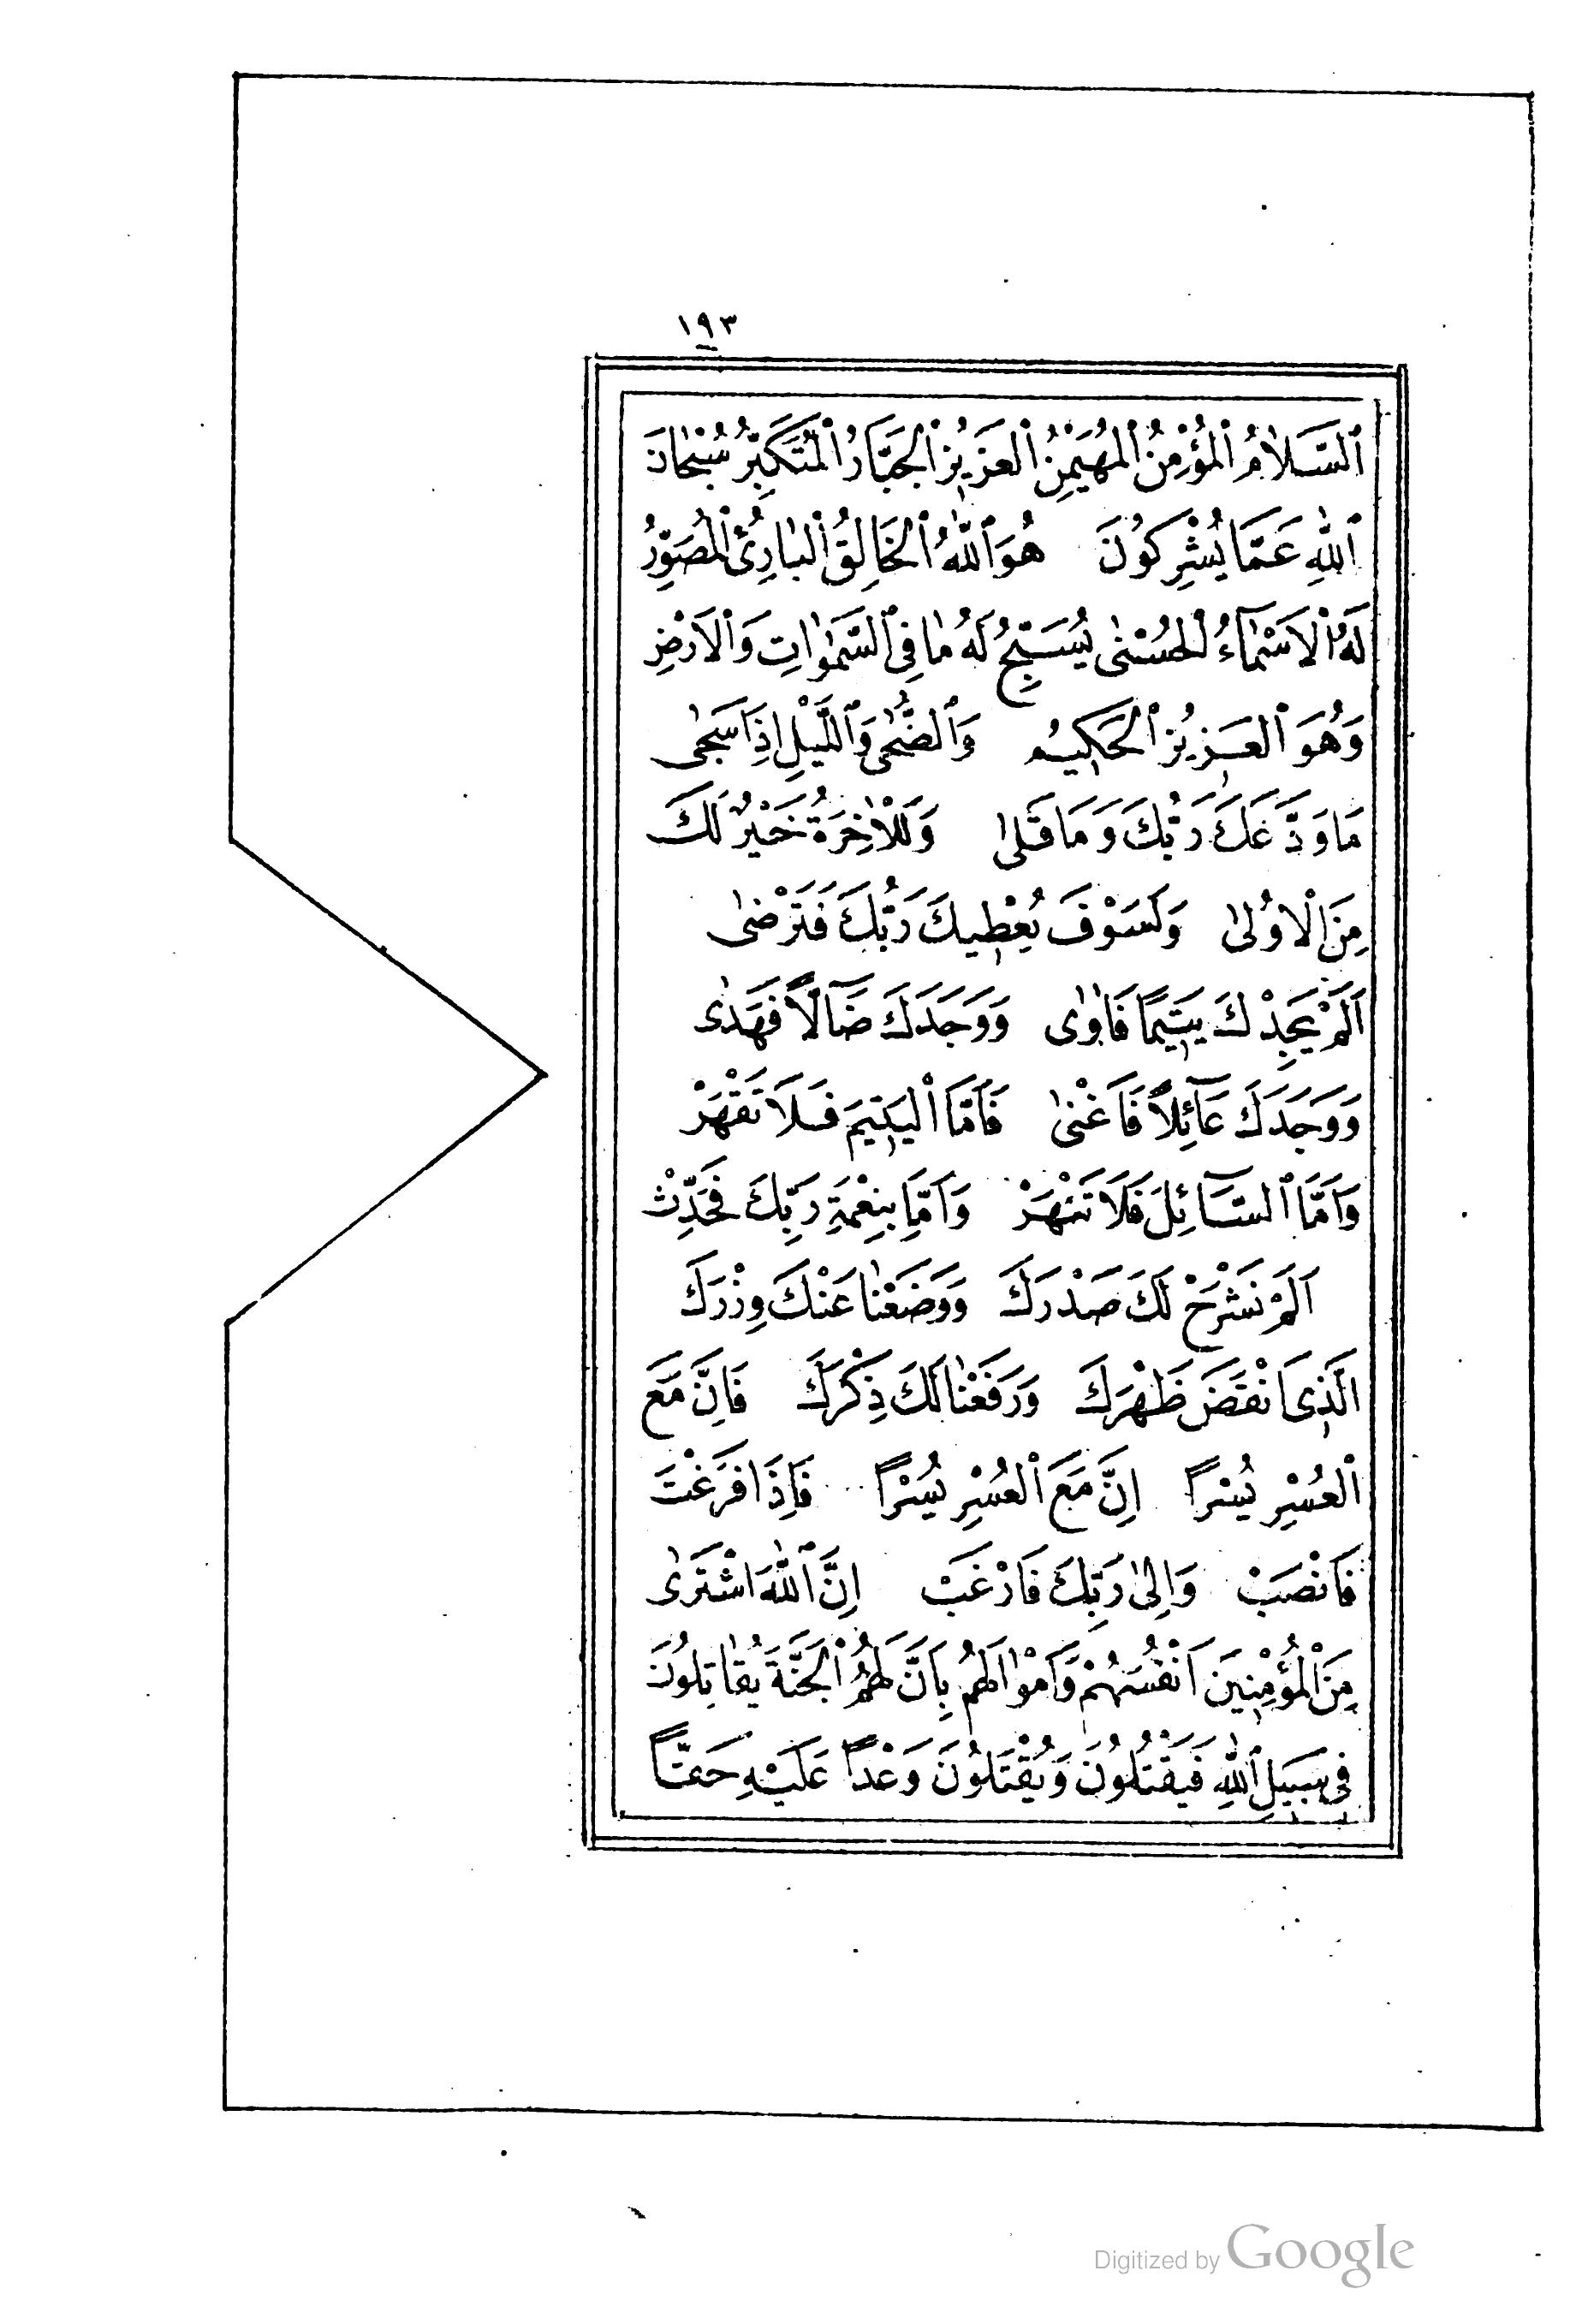 ١٩٣
ٱلسَّلَامُ ٱلْمُؤْمِنُ ٱلْمُهَيْمِنُ ٱلْعَزَيِزُ ٱلْجَبَّارُ ٱلْمُتَكَبِّرُ سُبْحَانَ
ٱللّٰهِ عَمَّا يُشْرِكُونَ هُوَ ٱللّٰهُ ٱلْخَالِقُ ٱلْبَارِئُ ٱلْمُصَوِّرُ
لَهُ ٱلْاَسْمَآءُ لْحُسْنٰى يُسَبِّحُ لَهُ مَا فِى ٱلسَّمٰوَاتِ وَٱلْاَرْضِ
وَهُوَ ٱلْعَزِيزُ ٱلْحَكِيمُ وَٱلضُّحٰى وَٱللَّيْلِ اِذَا سَجٰى
مَا وَدَّعَكَ رَبُّكَ وَمَا قَلٰى وَلَلْاٰخِرَةُ خَيْرٌ لَكَ
مِنَ الْاُولٰى وَلَسَوْفَ يُعْطِيكَ رَبُّكَ فَتَرْضٰى
اَلَمْ يَجِدْكَ يَتِيمًا فَاٰوٰى وَوَجَدَكَ ضَآلًّا فَهَدٰى
وَوَجَدَكَ عَآئِلًا فَاَغْنٰى فَاَمَّا الْيَتِيمَ فَلَا تَقْهَرْ
وَاَمَّا ٱلسَّآئِلَ فَلَا تَنْهَرْ وَاَمَّا بِنِعْمَةِ رَبِّكَ فَحَدِّثْ
اَلَمْ نَشْرَحْ لَكَ صَدْرَكَ وَوَضَعْنَا عَنْكَ وِزْرَكَ
الَّذِى اَنْقَضَ ظَهْرَكَ وَرَفَعْنَا لَكَ ذِكْرَكَ فَاِنَّ مَعَ
ٱلْعُسْرِ يُسْرًا اِنَّ مَعَ ٱلْعُسْرِ يُسْرًا فَاِذَا فَرَغْتَ
فَانْصَبْ وَاِلٰى رَبِّكَ فَارْغَبْ اِنَّ ٱللّٰهَ اشْتَرٰى
مِنَ ٱلْمُؤْمِنِينَ اَنْفُسَهُمْ وَاَمْوَالَهُمْ بِاَنَّ لَهُمُ ٱلْجَنَّةَ يُقَاتِلُونَ
فِى سَبِيلِ ٱللّٰهِ فَيَقْتُلُونَ وَيُقْتَلُونَ وَعْدًا عَلَيْهِ حَقًّا
Digitized by Google